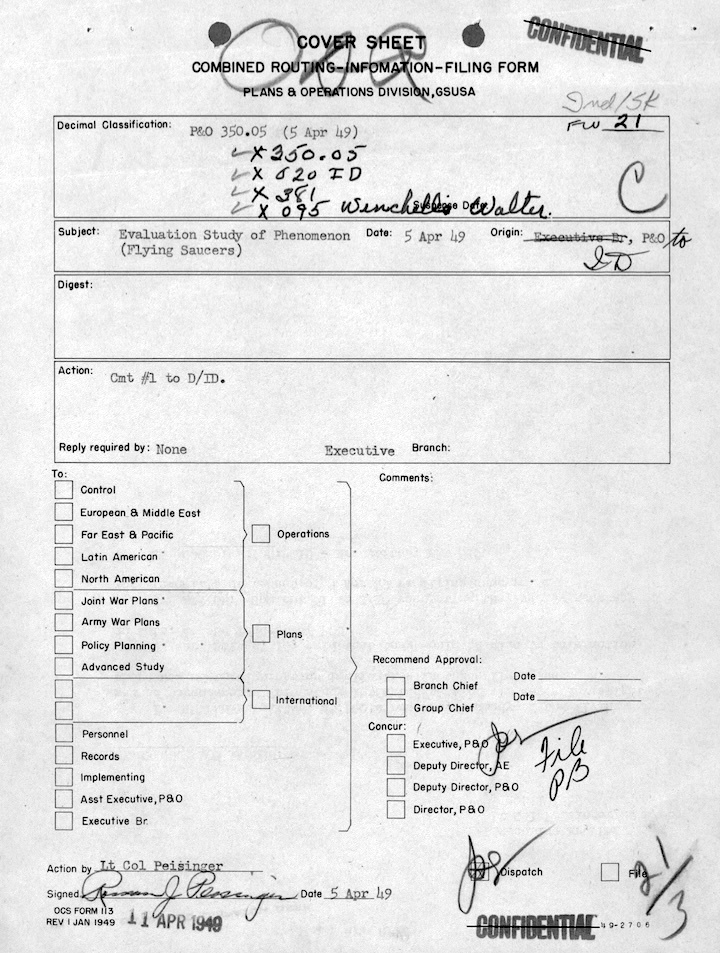 CONFIDENTIAL
COVER SHEET
COMBINED ROUTING-INFOMATION-FILING FORM
PLANS & OPERATIONS DIVISION, GSUSA
FW 21
Decimal Classification: P&O 350.05 (5 Apr 49)
✓ X 350.05
✓ X 020 ID
✓ X 381
✓ X 095 Winchell's Walter.
Suspense Date:
C
Subject: Evaluation Study of Phenomenon Date: 5 Apr 49 Origin: Executive Br, P&O to
(Flying Saucers) ID
Digest:
Action: Cmt #1 to D/ID.
Reply required by: None Executive Branch:
To:
Comments:
Control
European & Middle East
Far East & Pacific Operations
Latin American
North American
Joint War Plans
Army War Plans
Plans
Policy Planning
Advanced Study
Recommend Approval:
Branch Chief Date
International Date
Group Chief
Concur:
Personnel
Executive, P&O
File
PB
Records
Deputy Director, AE
Implementing
Deputy Director, P&O
Asst Executive, P&O
Director, P&O
Executive Br.
Action by Lt Col Peisinger
Dispatch File
21/3
Signed Roman J Peisinger Date 5 Apr 49
OCS FORM 113
REV 1 JAN 1949 11 APR 1949
CONFIDENTIAL 49-2706